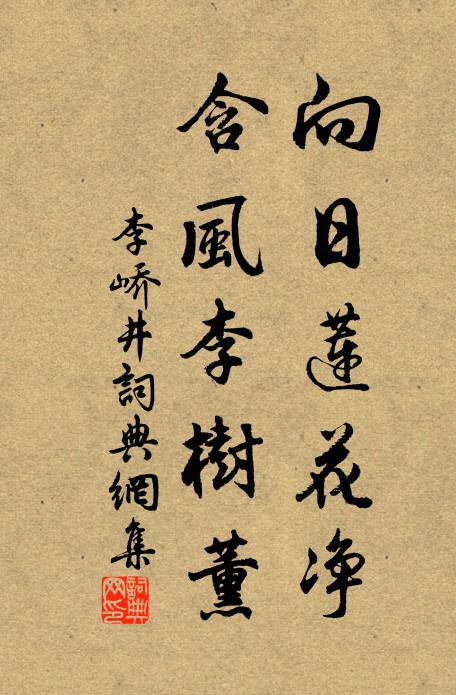 向日蓮花净
含風李樹薰
李嶠井詞典網集
詞典网印